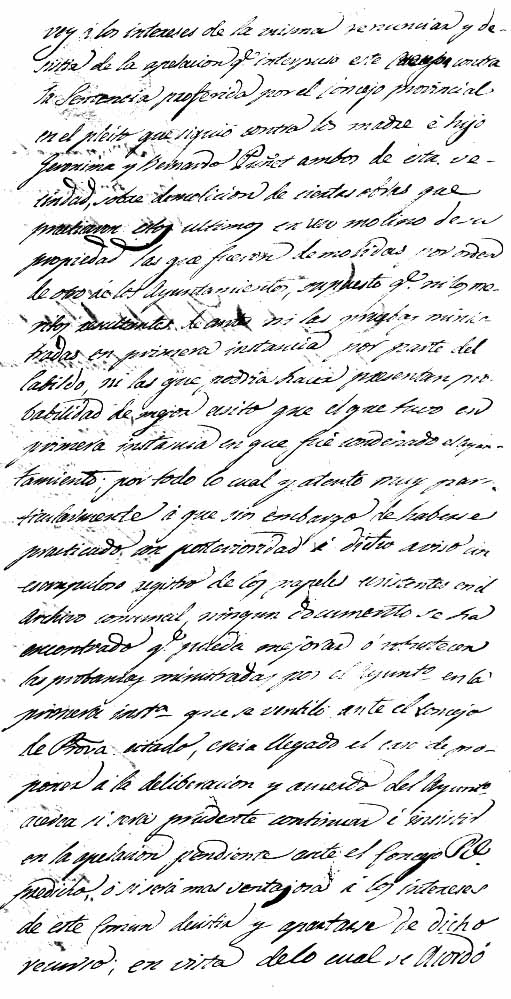 voy á los intereses de la misma renunciar y de-
sistir de la apelacion qe. interpuso este contra
la Sentencia proferida por el Concejo provincial
en el pleito que siguió contra los madre é hijo
Geronima y Bernardo Puñet ambos de esta ve-
cindad, sobre demolicion de ciertas obras que
practicaron estos ultimos en un molino de su
propiedad las que fueron demolidas por orden
de otro de los Ayuntamientos, supuesto qe. ni los me-
ritos resultantes de autos ni las pruebas minis-
tradas en primera instancia por parte del
Cabildo, ni las que podria hacer presentan pro-
babilidad de mejor exito que el que tuvo en
primera instancia en que fué condenado el Ayun-
tamiento; por todo lo cual y atento muy par-
ticularmente á que sin embargo de haberse
practicado con posterioridad á dicho aviso un
escrupuloso registro de los papeles existentes en el
Archivo comunal, ningun documento se ha
encontrado qe. pueda mejorar ó robustecer
las probanzas ministradas por el Ayunto. en la
primera insta. que se ventiló ante el Concejo
de Prova. citado, creia llegado el caso de pro-
poner á la deliberacion y acuerdo del Ayunto.
acerca si será prudente continuar é insistir
en la apelacion pendiente ante el Concejo Rl.
predicho, ó si será mas ventajosa á los intereses
de este Comun desistir y apartarse de dicho
recurso; en vista de lo cual se Acordó